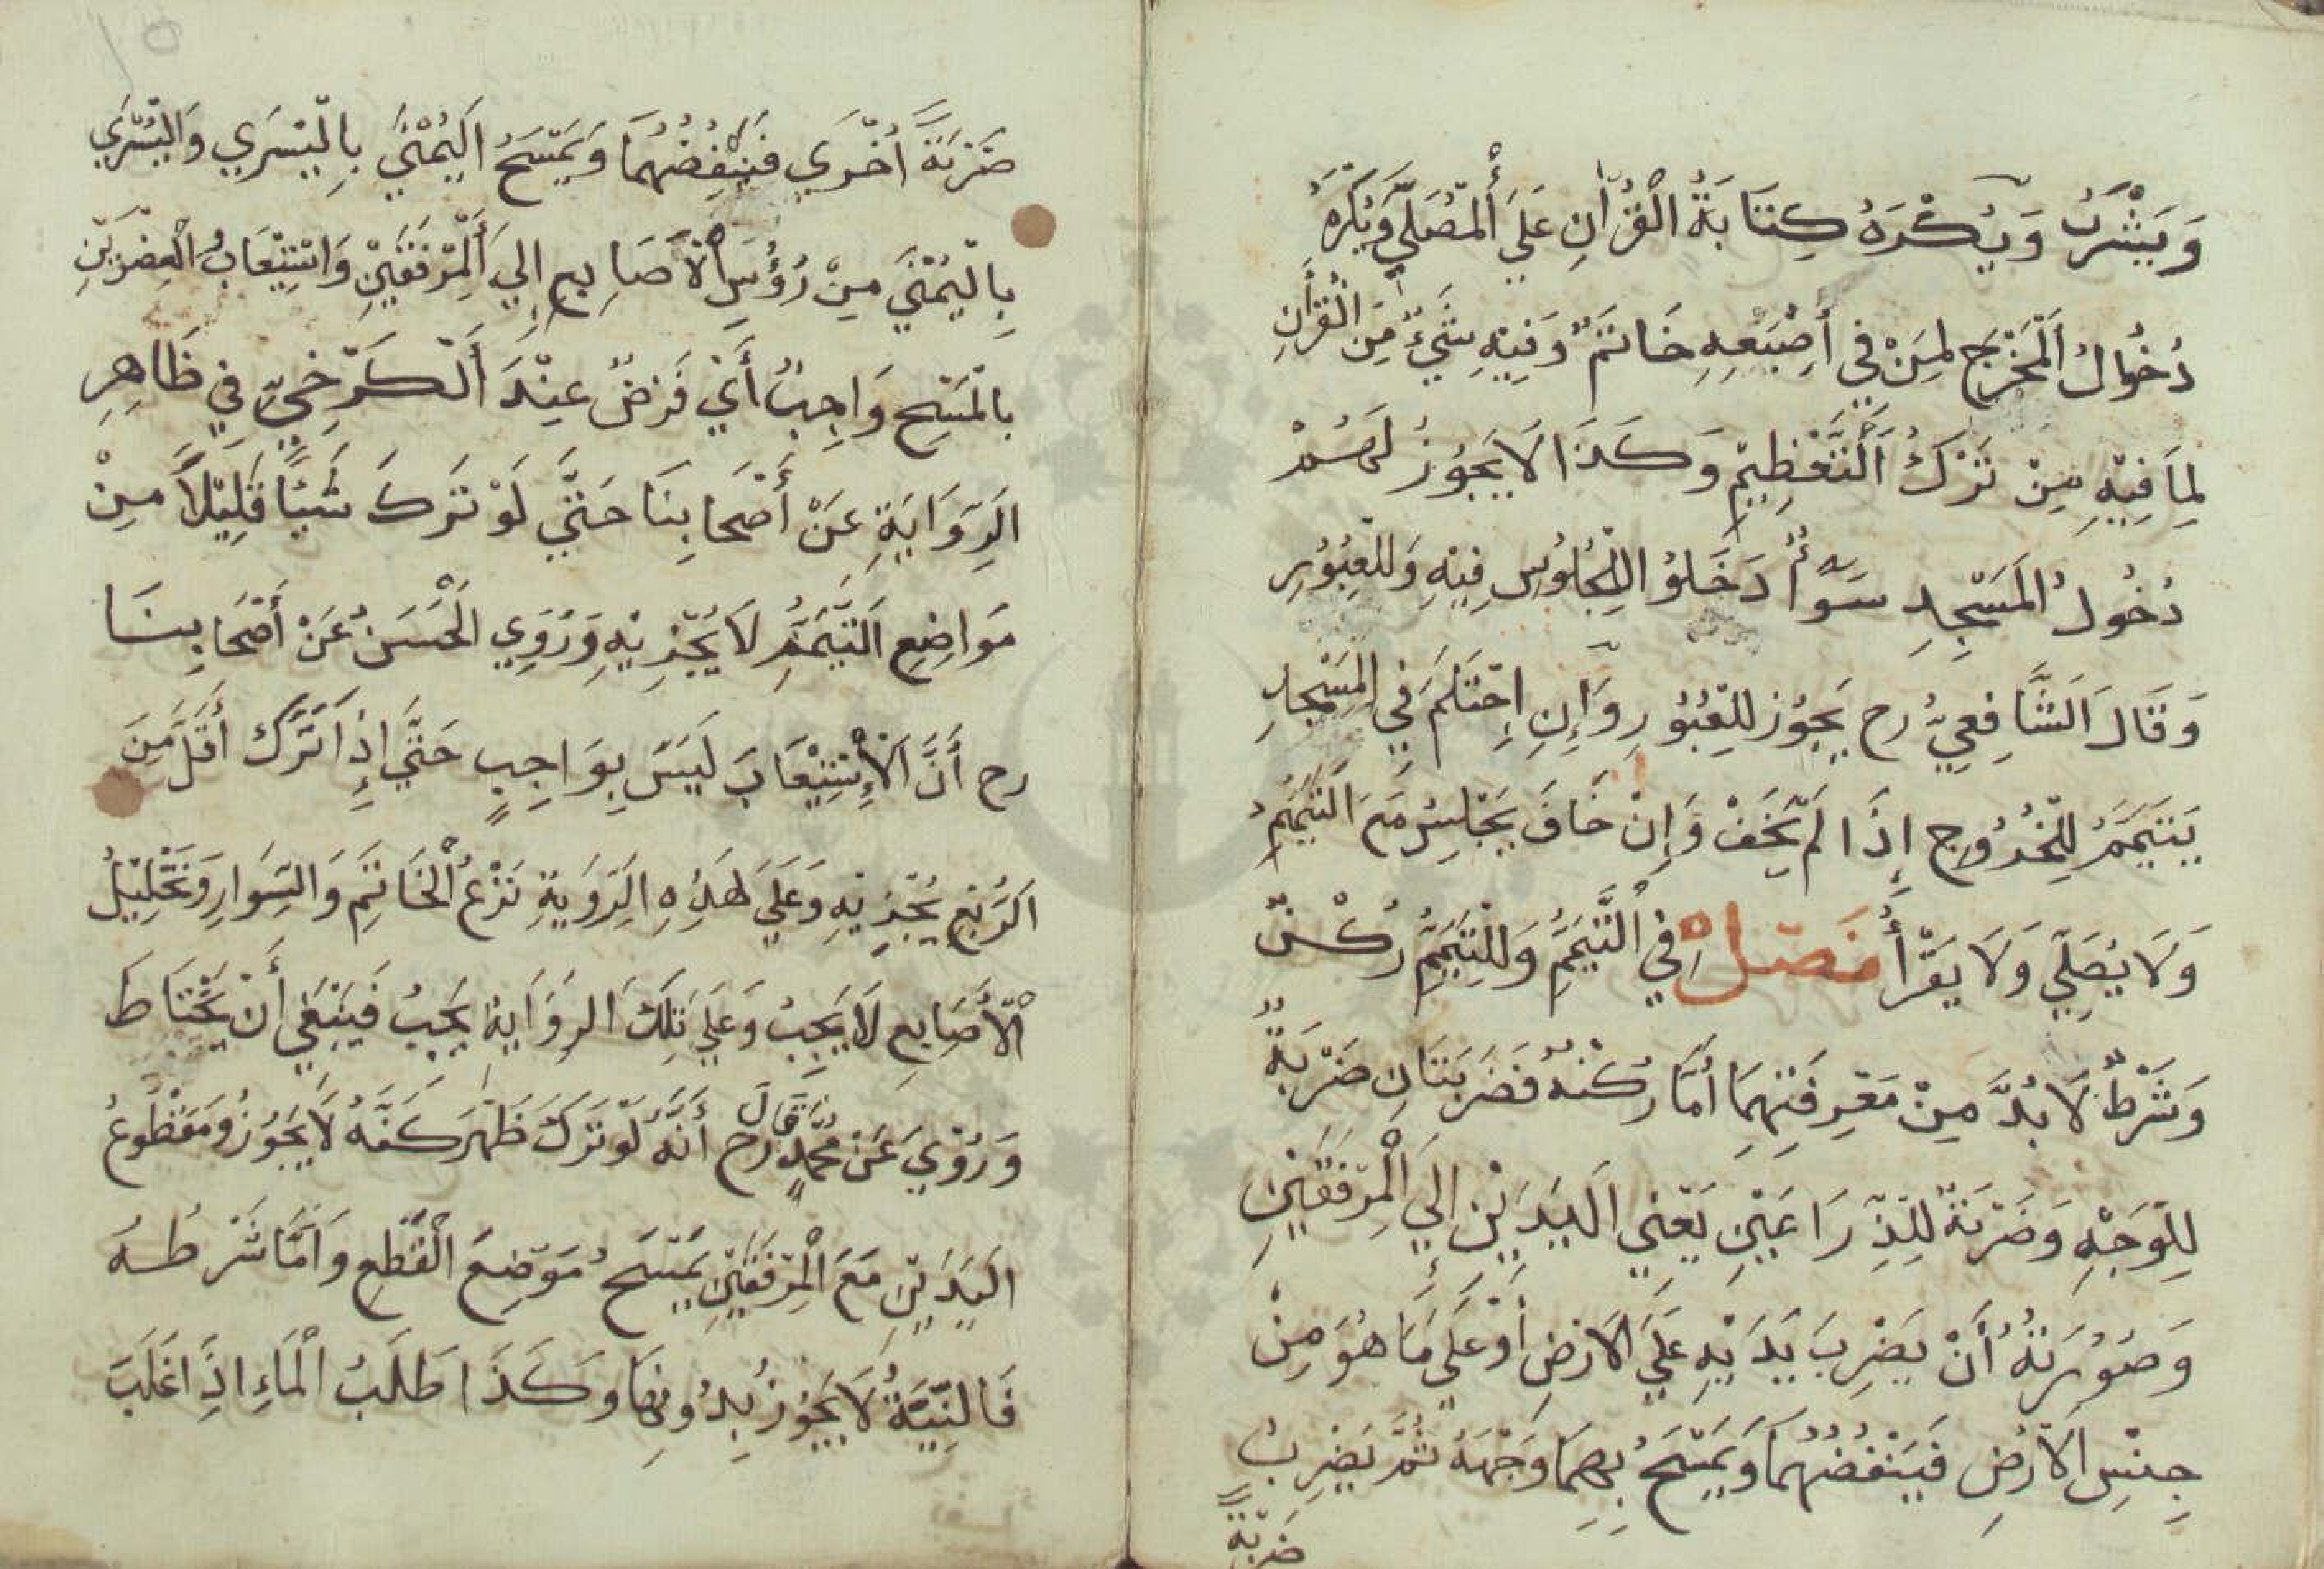 وَيَشْرَبُ وَيُكْرَهُ كِتَابَةُ الْقُرْآنِ عَلَي أَلْمُصَلَّي وَيُكْرَهُ
دُخُولُ الْمَخْرَجِ لِمَنْ فِي أَصْبَعِهِ خَاتَمٌ وَفِيْهِ شَيْءٌ مِنَ الْقُرْأَنِ
لِمَا فِيْهِ مِنْ تَرْكُ اَلتَّعْظِيْمِ وَكَذَا لَا يَجُوْزُ لَهُمْ
دُخُولُ الْمَسْجِدِ سَوَآءُ دَخَلُوْ الِلْجُلُوْسِ فِيْهِ وَلِلْعُبُوْرِ
وَقَالَ اَلشَّافِعِيُّ رح يَجُوْز لِلْعُبُوْرِ وَإِنِ احْتَلَمَ فِي الْمَسْجِدِ
يَتَيَمَّمُ لِلْخُرُوْجِ إِذَا لَمْ يَخَفْ وَإِنْ خَافَ يَجْلِسُ مَعَ التَّيَمُّمِ
وَلَا يُصَلِّي وَلَا يَقْرَأُ فَصْلٌ فِي التَّيَمُّمِ وَلِلتَّيَمُّمِ رُكْنٌ
وَشَرْطٌ لَا بُدَّ مِنْ مَعْرِفَتِهِمَا أَمَّا رُكْنُهُ فَضَرْبَتَانِ ضَرْبَةٌ
لِلْوَجْهِ وَضَرْبَةٌ لِلذِّرَاعَيْنِ يَعْنِي الْيَدَيْنِ إِلَي الْمِرْفَقَيْنِ
وَصُوْرَتُهُ أَنْ يَضْرِبَ يَدَيْهِ عَلَي الْاَرْضِ أَوْ عَلَي مَا هُوَ مِنْ
جِنْسِ الْاَرْضِ فَيَنْفُضُهُمَا وَيَمْسَحُ بِهِمَا وَجْهَهُ ثُمَّ يَضْرِبُ
ضَرْبَةً
ضَرْبَةً أُخْرَي فَيَنْفُضُهُمَا وَيَمْسَحُ الْيُمْنَي بِالْيُسْرَي وَالْيُسْرَي
بِالْيُمْنَي مِنْ رُؤُسِ الْأَصَابِعِ إِلَي الْمِرْفَقَيْنِ وَاسْتِيْعَابُ الْعِضْوَيْنِ
بِالْمَسْحِ وَاجِبٌ أَيْ فَرْضٌ عِنْدَ أَلْكَرْخِيِّ فِي ظَاهِرِ
الرِّوَايَةِ عَنْ أَصْحَابِنَا حَتَّي لَوْ تَرَكَ شَيْئًا قَلِيْلًا مِنْ
مَوَاضِعِ التَّيَمُّمِ لَا يُجْزِيْهِ وَرَوَي الْحَسَنُ عَنْ أَصْحَابِنَا
رح أَنَّ الْإِسْتِيْعَابَ لَيْسَ بِوَاجِبٍ حَتَّي إِذَا تَرَكَ أَقَلَّ مِنَ
الرُّبْعِ يُجْزِيْهِ وَعَلَي هَذِهِ الرِّوَيةِ نَزْعُ الْخَاتَمِ وَالسِّوَارِ وَتَخْلِيْلُ
الْأَصَابِعِ لَا يَجِبُ وَعَلَي تِلْكَ الرِوَايَةِ يَجِبُ فَيَنْبَغِي أَنْ يَحْتَاطَ
وَرُوْيَ عَنْ مُحَمَّدٍ رح قَالَ أَنَّهُ لَوْ تَرَكَ ظَهْرَ كَفِّهِ لَا يَجُوْزُ وَمَقْطُوْعُ
الْيَدَيْنِ مَعَ الْمِرْفَقَيْنِ يَمْسَحُ مَوْضِعَ الْقَطْعِ وَاَمَّا شَرْطُهُ
فَالنِّيَّةُ لَا يَجُوْزُ بِدُوْنِهَا وَكَذَا طَلَبُ الْمَاءِ اِذَا غَلَبَ